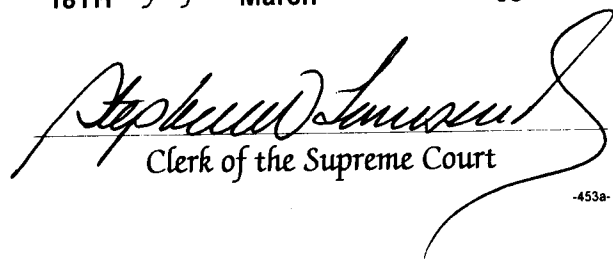 18TH March
Stephen W Townsend
Clerk of the Supreme Court
-453a-